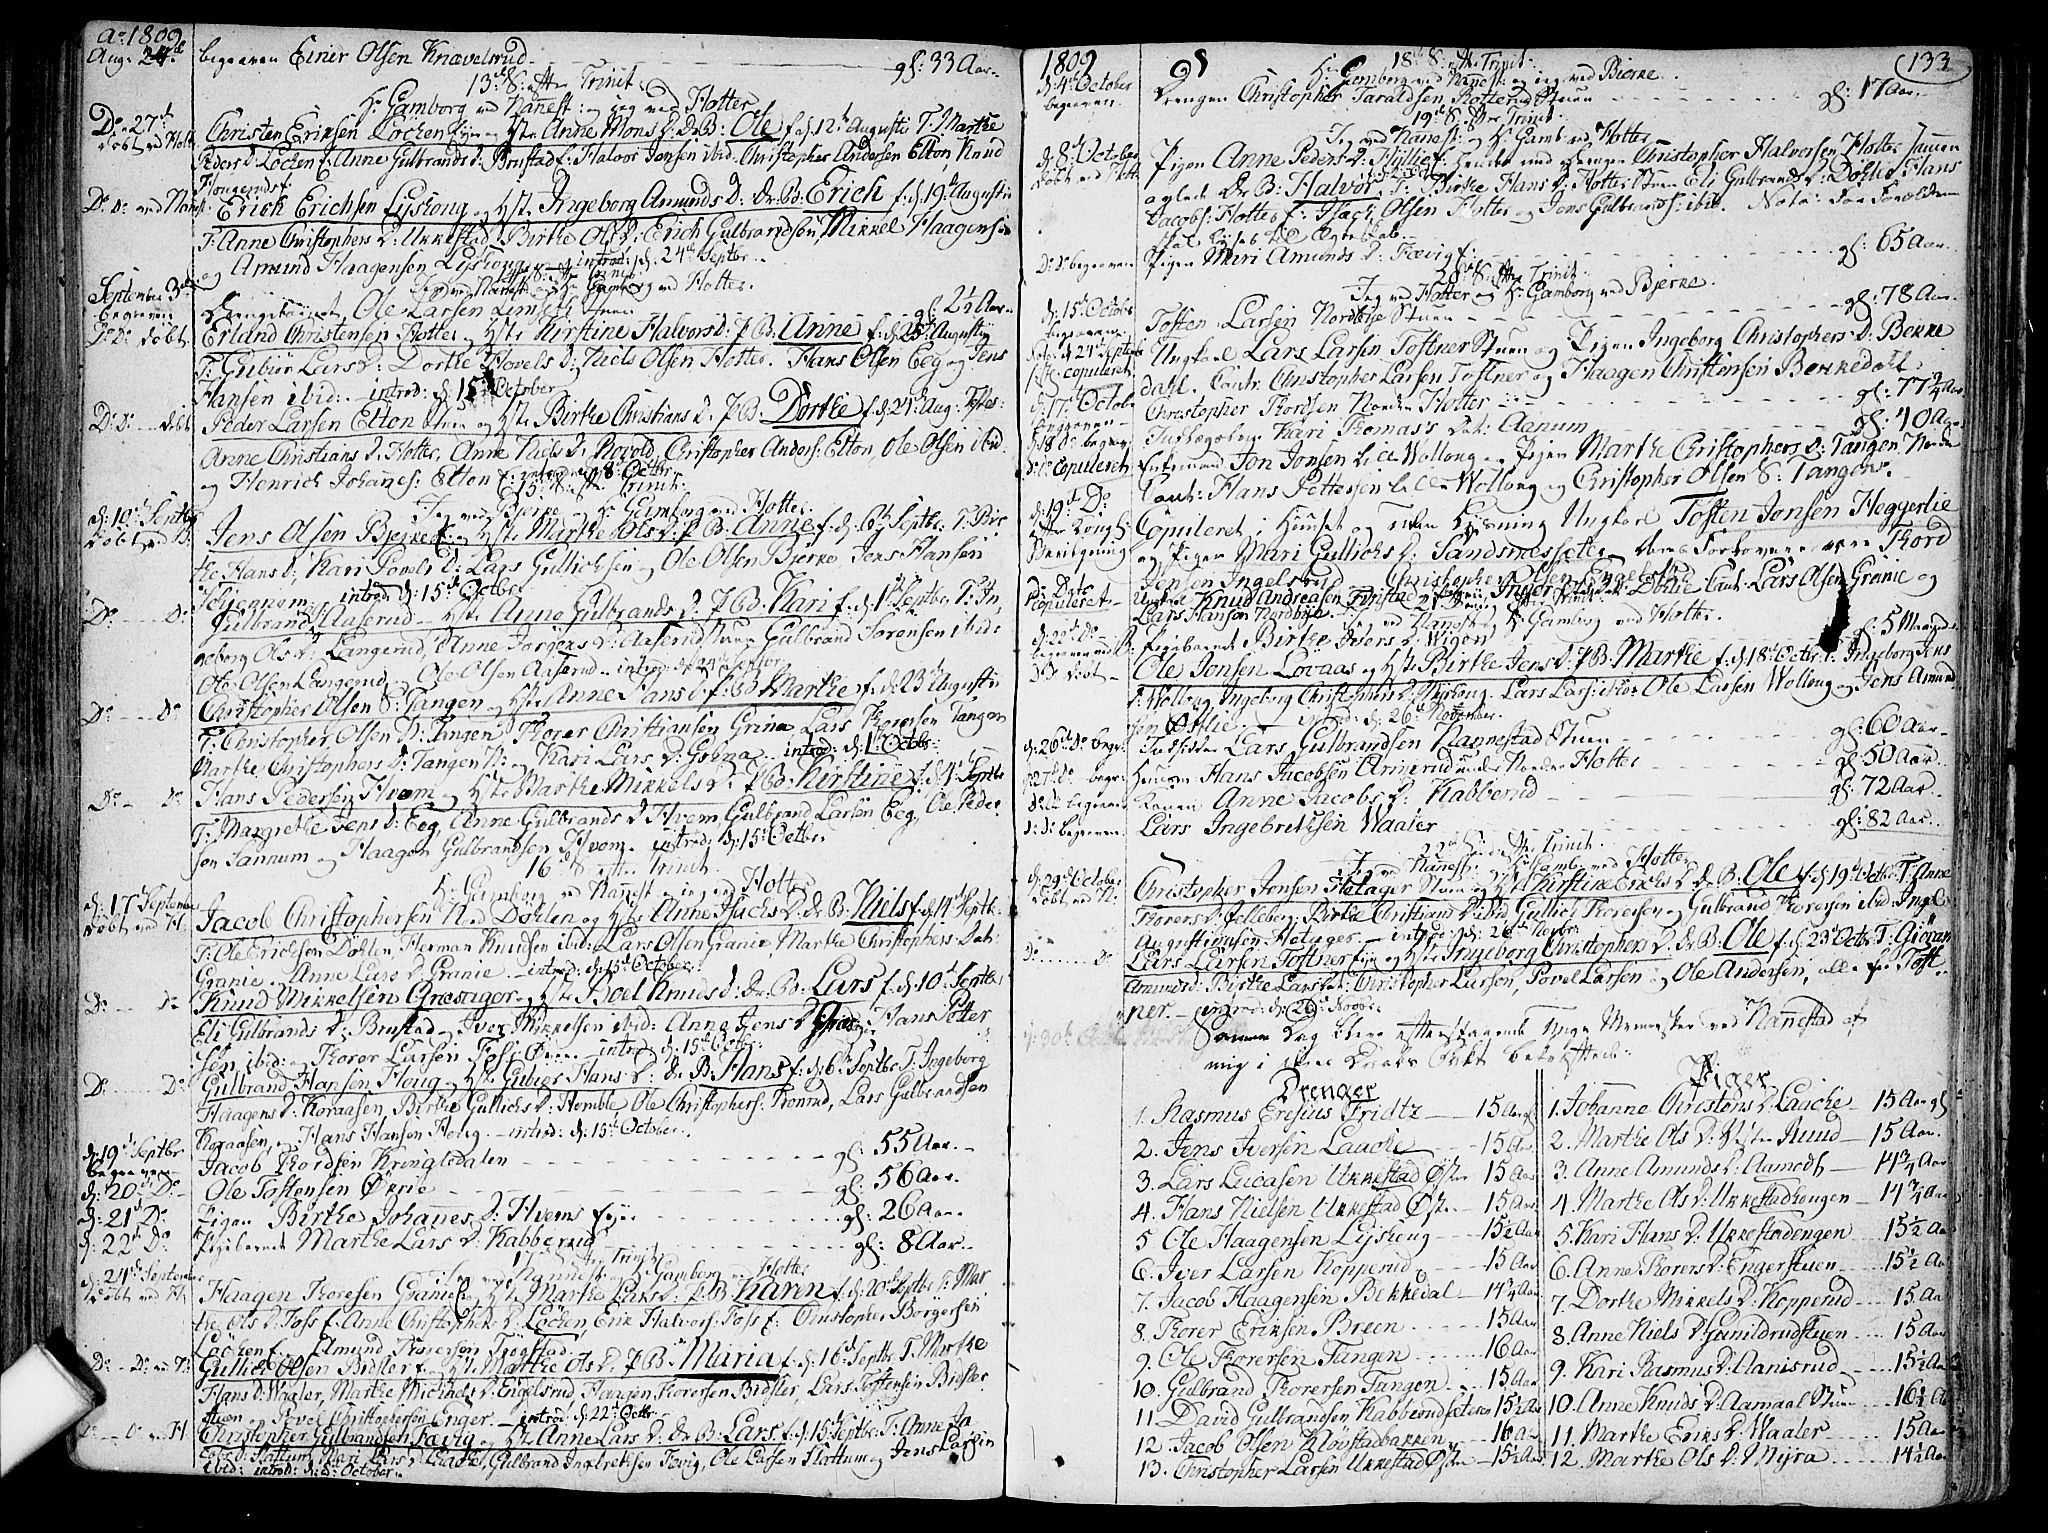 Ao 1809
Aug: 24de begraven Einer Olsen Knævelsrud gl: 33 Aar
13de S: efter Trinit:
Hr Gamborg ved Nanest: og jeg ved Hotter
Do 27de Christen Eriksen Löcken Eje og Hst: Anne Mons D. Dr: B: Ole f: d: 12te Augusti T: Marthe
döbt ved Hotter Peders D: Löcken f: Anne Gulbrands D: Brustad f: Halvor Jonsen ibid: Christopher Andersen Elton, Knud
Hougerud f.
Do Do ved Nanst. Erich Erichsen Lyskoug og Hst: Ingeborg Amunds D: Dr: B: Erich f: d: 19de Augusti
T: Anne Christophers D: Ukkestad, Birthe Ols D: Erich Gulbrandsen, Mikkel Haagensen
og Amund Haagensen Lyskoug introd: d: 24de Septbr.
14de S: efter Trinit:
Jeg ved Nanest: og Hr Gamborg ved Hotter.
September 3die
begraven Drengebarnet Ole Larsen gl: 2½ Aar
Do Do döbt Erland Christensen Hotter og Hst: Kirstine Halvors D: P B: Anne f: d: 25de Augustij
T: Gubiör Lars D: Dorthe Hovels D: Niels Olsen Hotter. Hans Olsen Eeg og Jens
Hansen ibid: introd: d: 15de October
Do Do döbt Peder Larsen Elton og Hst: Birthe Christians D. P B: Dorthe f: d: 24de Aug: Test:
Anne Christians D. Hotter, Anne Niels D. Rovold, Christopher Anders: Elton, Ole Olsen ibid.
og Henrich Johanes: Elton f: introd: d: 8de Octbr.
15de S: efter Trinit:
Jeg ved Bjerke og Hr Gamborg ved Hotter.
d: 10de Septbr Jens Olsen Bjerke f: og Hst: Marthe Ols D: P B: Anne f: d: 6te Septbr. T: Bir
the Hans D, Kari Povels D: Lars Gullichsen og Ole Olsen Bjerke, Jens Hansen
introd: d: 15de Octbr
Do Do Gulbrand Aaserud Hst: Anne Gulbrands D. P B: Kari f: d: 1ste Septbr. T: In
geborg Ols D: Langerud, Anne Jörgens D: Aaserud Gulbrand Sörensen ibid:
Ole Olsen Langerud og Ole Olsen Aaserud introd: d: 24de Septbr
Do Do Christopher Olsen S: Tangen og Hst: Anne Hans D. P: B: Marthe f: d: 23de Augusti
T: Christopher Olsen N: Tangen Thorer Christiansen Grina, Lars Thoresen Tangen
Marthe Christophers D: Tangen N: og Kari Lars D: Grina introd: d: 1ste Octbr:
Do Do Hans Pedersen Hvam og Hst: Marthe Mikkels D: P B: Kirstine f: d: 4de Septbr
T: Margrethe Jens D: Eeg, Anne Gulbrands D. Hvem, Gulbrand Larsen Eeg, Ole Peder
sen Sannum og Haagen Gulbrandsen Hvam introd: d: 15de Octbr.
16de S: efter Trinit:
Hr Gamborg ved Nanest og jeg ved Hotter
d: 17de September
döbt ved H. Jacob Christophersen N. Döhlen og Hst: Anne Isachs D: Dr: B: Niels f: d: 14de Septbr.
T: Ole Erichsen Döhlen, Herman Knudsen ibid: Lars Olsen Granie, Marthe Christophers: Dat:
Granie. Anne Lars D: Granie introd: d: 15de October
Do Do Knud Mikkelsen Græsager og Hst: Boel Knuds D: Dr: B: Lars f: d: 10de Septbr
Eli Gulbrands D: Brustad og Iver Mikkelsen ibid: Anne Jens D: Hans Petter
sen ibid: Thorer Larsen introd: d: 15de Octbr:
Do Do Gulbrand Hansen Houg og Hst: Gubiör Hans D: Dr: B: Hans f: d: 6te Septbr T: Ingeborg
Haagens D: Koraasen, Birthe Gullichs D: Homble, Ole Christophers: Tronrud, Lars Gulbrandsen
Koraasen, Hans Hansen Hovig. introd: d: 15de October
d: 19de Septbr
begraven Jacob Thordsen Kringlsdalen gl: 55 Aar
d: 20de Do Ole Tostensen Økrie gl: 56 Aar.
d: 21de Do Pigen Birthe Johanes D. Hvems Ejer gl: 26 Aar.
d: 22de Do Pigebarnet Marthe Lars D. Kabberrud gl: 8 Aar.
17de S: efter Trinit:
Jeg ved Nannest: og Hr Gamborg ved Hotter
d: 24de September
döbt ved H. Haagen Thoresen Granie og Hst: Marthe Lars D: P B: Karen f: d: 20de Septbr T: Mar
the Ols D: Foss f: Anne Christophers D: Löcken, Erik Halvors: Foss f: Christopher Borgersen
Löcken f. Amund Thoresen Frögstad
Do Do Gullich Olsen Bidsler og Hst: Marthe Ols D. P B: Maria f: d: 16de Septbr. T: Marthe
Hans D: Waaler, Marthe Michels D: Engelsrud, Haagen Thoresen Bidsler, Lars Tostensen Bidsler
stuen, Povel Christophersen Enger introd: d: 22de Octbr.
Do Do H. Christopher Gulbrandsen Favig og Hst: Anne Lars D. Dr: B: Lars f: d: 15de Septbr. T: Anne Ja
cobs D. Slottum, Mari Lars D: Gulbrand Ingebretsen Favig, Ole Larsen Slottum og Jens Larsen
ibid: introd: d: 8de October.
1809 133
18de S: efter Trinit:
Hr Gamborg ved Nanest: og jeg ved Bjerke.
d: 4de October
begraven. Drengen Christopher Taraldsen Rotterud Stuen gl: 17 Aar.
19de S. efter Trinit:
Jeg ved Nanest: og Hr Gamb: ved Hotter
d: 8de October
döbt ved Hotter Pigen Anne Peders D: Hyllie f: hendes med Drengen Christopher Halvorsen Hotter sammen
avlede Dr: B: Halvor T: Birthe Hans D: Hotter Stuen Eli Gulbrands D: Döhlie Hans
Jacobs: Hotter f: Isach Olsen Hotter og Jens Gulbrands: ibid. Nota: For Forældrene
skal lyses til Ægteskab.
Do Do begraven Pigen Mari Amunds D: Favig f. gl: 65 Aar.
20de S: efter Trinit:
Jeg ved Hotter og Hr Gamborg ved Bjerke.
d: 15de Octobr
begraven Tosten Larsen Nordbye Stuen gl: 78 Aar.
d: 24de September
copuleret Ungkarl Lars Larsen Tostner Stuen og Pigen Ingeborg Christophers D: Bekke
dahl. Cautr. Christopher Larsen Tostner og Haagen Christensen Bekkedahl.
d: 17de Octobr
begraven Christopher Thordsen Norder Hotter gl: 77¾ Aar
d: 18de Do begr: Kari Thomas's Dat: Aanum gl: 40 Aar
Do Do copuleret Enkemand Jon Jonsen lille Wollong og Pigen Marthe Christophers D: Tangen Norder
Caut: Hans Pettersen lille Wollong og Christopher Olsen S: Tangen.
d: 19de Do
efter Kongl:
Bevilgning Copuleret i Huuset og uden Lysning Ungkarl Tosten Jonsen Heggerlie
og Pigen Mari Gullichs D: Sandsnesseter Deres Forlovere vare Thord
Jensen Ingelsrud Christopher Olsen Engelsrud
Do Dato
Copuleret Ungkarl Knud Andreasen Fyristad og Pigen Inger Döhlie Caut: Lars Olsen Granie og
Lars Hansen Nordbye.
21de S: efter Trinit:
Jeg ved Nanest: og Hr Gamborg ved Hotter.
d: 22de Do
begraven Pigebarnet Birthe Ivers D: Wigen gl: 5 Maaneder
Do döbt Ole Jonsen Lovaas og Hst: Birthe Jens D: P B: Marthe f: d: 18de Octbr: T: Ingeborg Jens
D: Wollong, Ingeborg Christophers D: Myhong. Lars Lars: Ole Larsen Wollong og Jens Amund
sen Østlie introd: d: 26de November.
d: 26de Do begr: Lars Gulbrandsen Nannestad Stuen gl: 60 Aar
d: 27de Do begr: Hans Jacobsen Armerud under Norder Hotter gl: 50 Aar
Do Do begraven Konen Anne Jacobs D: Kabberud gl: 72 Aar
Do Do begraven Lars Ingebretsen Waaler gl: 82 Aar
22de S: efter Trinit:
Jeg ved Nanest: og Hr Gamb: ved Hotter
d: 29de October
döbt ved N: Christopher Jonsen Holager Stuen og Hst: Kirstine Erichs D. Dr: B. Ole f: d: 19de Octbr T: Anne
Thorers D: Jelleberg, Birthe Christians D: ibid Gullich Thoresen og Gulbrand Thoresen ibid: Ingel
Augustinusen Holager introd: d: 26de Novbr.
Do Do Lars Larsen Tostner Eje og Hst: Ingeborg Christophers D. Dr: B: Ole f: d: 23de Octbr T: Giöran
Amunds D: Birthe Lars Dat: Christopher Larsen, Povel Larsen og Ole Andersen, alle f. Tost
ner. introd: d: 26de Novbr.
Samme Dag bleve efterstaaende Unge Mennesker ved Nannestad af
mig i deres Daabs Pagt bekræftede:
Drenger
1. Rasmus Eresius Fridtz 15 Aar gl
2. Jens Iversen Laache 15 Aar
3. Lars Lucasen Ukkestad Øst: 15 Aar
4. Hans Nielsen Ukkestad Øst: 15 Aar
5 Ole Haagensen Lyskoug 15½ Aar
6. Iver Larsen Kopperud 15 Aar
7. Jacob Haagensen Bekkedal 14¾ Aar
8. Thorer Eriksen Breen 15 Aar
9. Ole Thorersen Tangen 16 Aar
10. Gulbrand Thorersen Tangen 15 Aar
11. David Gulbrandsen Kabberudseteren 15½ Aar
12. Jacob Olsen Klövstadbakken 16 Aar
13. Christopher Larsen Ukkestad Øst: 15½ Aar
Piger
1. Johanne Christens D: Laache 15 Aar gl
2. Marthe Ols D: Ruud 15 Aar
3. Anne Amunds D: Aamodt 14¾ Aar
4. Marthe Ols D: Ukkestadhengen 14¾ Aar
5. Kari Hans D: Ukkestadengen 15½ Aar
6. Anne Thorers D: Engerstuen 15½ Aar
7. Dorthe Mikkels D: Kopperud 15 Aar
8. Anne Niels D: Gunildrudstuen 15 Aar
9. Kari Rasmus D: Aanisrud 15½ Aar
10. Anne Knuds D: Aamaal Stuen 16½ Aar
11. Marthe Eriks D: Waaler 15 Aar
12. Marthe Ols D: Myra 14½ Aar